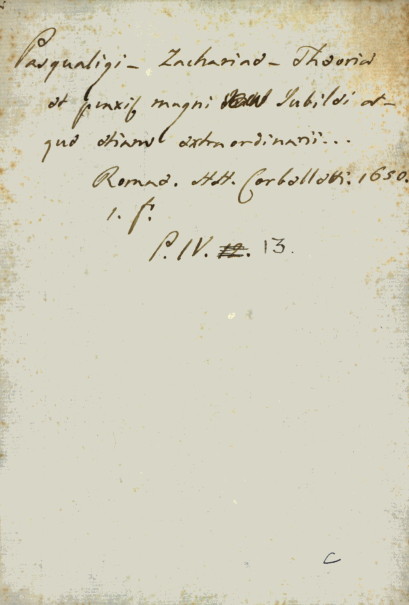 Pasqualigi - Zachariae - Theoria
et praxis magni Iubilei at-
que etiam extraordinarii...
Romae. HH. Corbelletti. 1650.
1. f.
P. IV. 13.
C